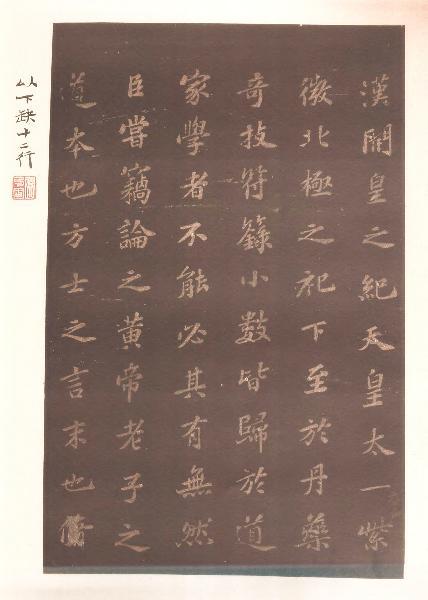 漢開皇之紀天皇太一紫
微北極之祀下至於丹藥
奇技符籙小數皆歸於道
家學者不能必其有無然
臣嘗竊論之黃帝老子之
道本也方士之言末也脩
以下缺十二行